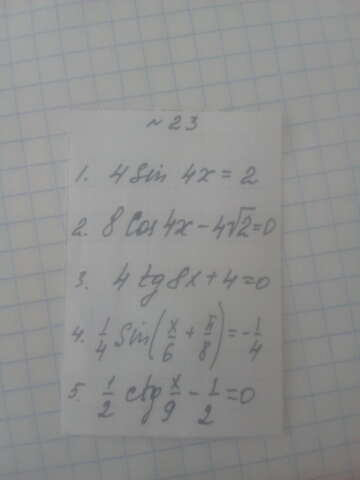 ~ 23
1. 4 Sin 4x = 2
2. 8 Cos 4x - 4√2 = 0
3. 4 tg 8x + 4 = 0
4. 1/4 Sin(x/6 + π/8) = -1/4
5. 1/2 ctg x/9 - 1/2 = 0